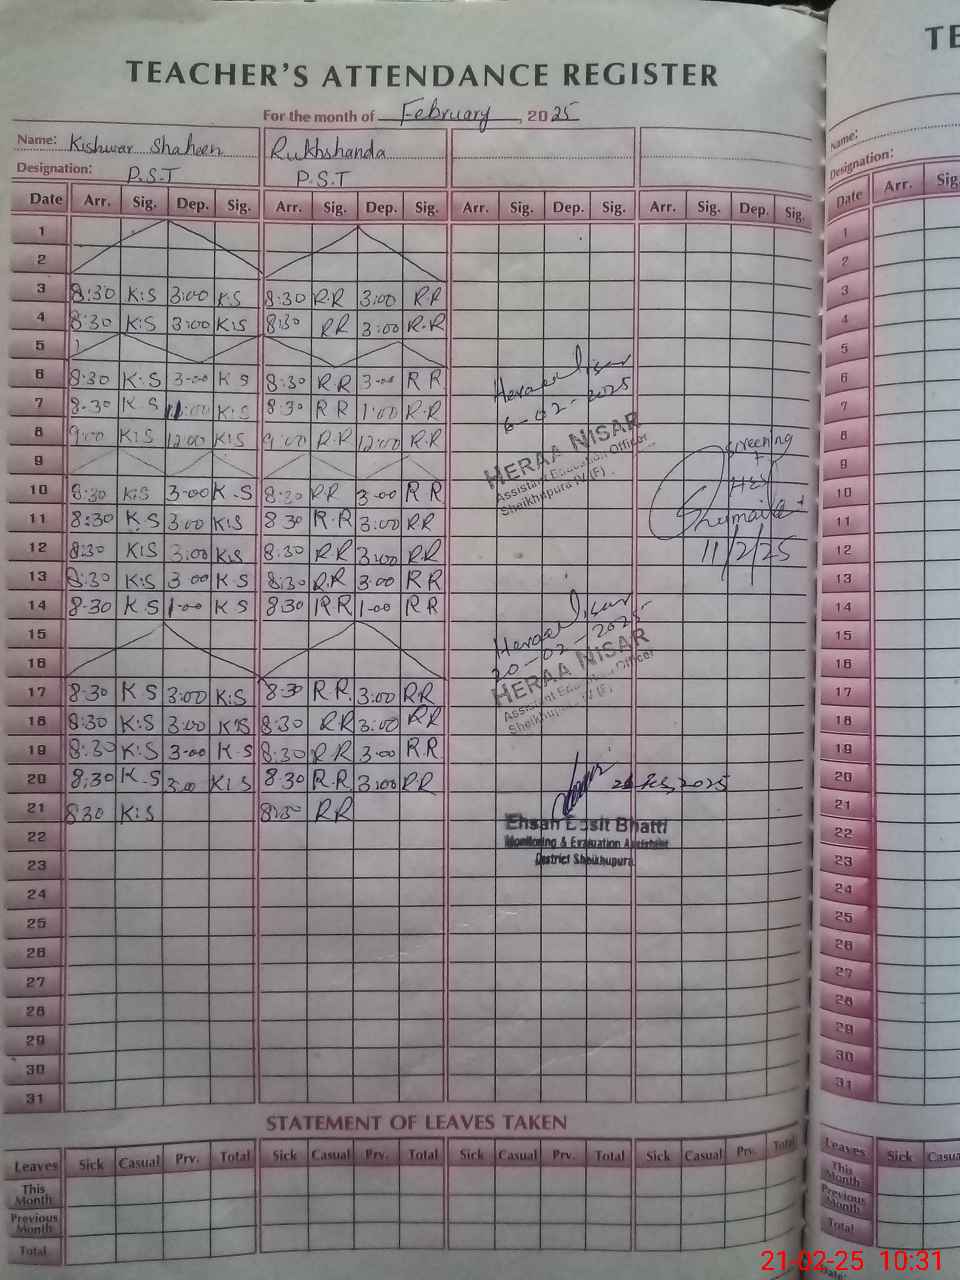 TEACHER'S ATTENDANCE REGISTER
For the month of February, 2025
Name: Kishwar Shaheen Rukhshanda
Designation: P.S.T P.S.T
Date Arr. Sig. Dep. Sig. Arr. Sig. Dep. Sig. Arr. Sig. Dep. Sig. Arr. Sig. Dep. Sig.
1
2
3 8:30 K:S 3:00 K:S 8:30 R.R 3:00 R.R
4 8:30 K:S 3:00 K:S 8:30 RR 3:00 R.R
5
6 8:30 K:S 3-00 K S 8:30 RR 3-00 R R
7 8.30 K S 1:00 K:S 8:30 R R 1:00 R.R
8 9:00 K:S 12:00 K:S 9:00 R.R 12:00 R.R
9
10 8:30 K:S 3-00 K.S 8:30 RR 3-00 R R
11 8:30 K.S 3:00 K:S 8 30 R.R 3:00 RR
12 8:30 K:S 3:00 K:S 8:30 RR 3:00 RR
13 8:30 K:S 3 00 K S 8:30 R.R 3:00 R R
14 8-30 K S 1-00 K S 8:30 RR 1-00 R R
15
16
17 8-30 K S 3:00 K:S 8:30 R R 3:00 RR
18 8:30 K:S 3:00 K:S 8:30 RR 3:00 RR
19 8:30 K:S 3-00 K.S 8:30 R R 3:00 R.R
20 8:30 K.S 3:00 K:S 8:30 R.R 3:00 RR
21 8:30 K:S 8:30 RR
22
23
24
25
26
27
28
29
30
31
6-02-2025
HERAA NISAR
Assistant Education Officer
Sheikhupura IV (F)
screening
+
Shumaila
11/2/25
20-02-2025
HERAA NISAR
Assistant Education Officer
Sheikhupura IV (F)
2025
Ehsan Basit Bhatti
Monitoring & Evaluation Assistant
District Sheikhupura
STATEMENT OF LEAVES TAKEN
Leaves Sick Casual Prv. Total Sick Casual Prv. Total Sick Casual Prv. Total Sick Casual Prv. Total
This Month
Previous Month
Total
TE
Name:
Designation:
Date Arr. Sig
1
2
3
4
5
6
7
8
9
10
11
12
13
14
15
16
17
18
19
20
21
22
23
24
25
26
27
28
29
30
31
Leaves Sick Casua
This Month
Previous Month
Total
21-02-25 10:31